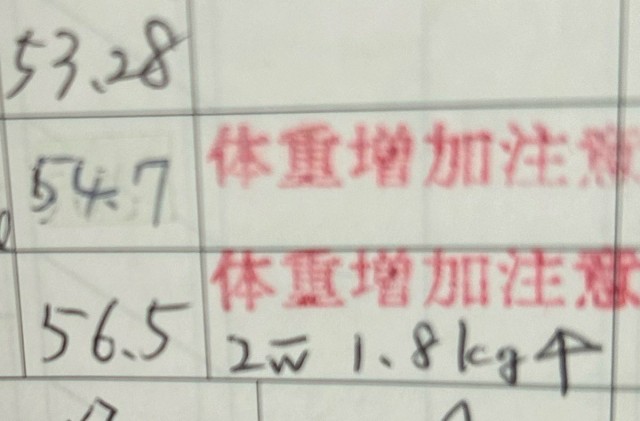 53.28
54.7 体重増加注意
56.5 体重増加注意
2w 1.8kg↑